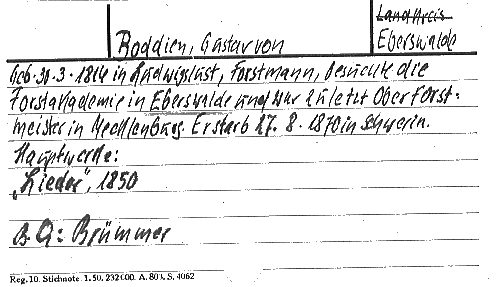 Landkreis
Boddien, Gustav von
Eberswalde
Geb. 30.3.1814 in Ludwigslust, Forstmann, besuchte die
Forstakademie in Eberswalde und war zuletzt Oberforst-
meister in Mecklenburg. Er starb 27.8.1870 in Schwerin.
Hauptwerke:
„Lieder", 1850
B.Q: Brümmer
Reg. 10. Stichnote. 1. 50. 232 000. A. 80 k. S. 4062